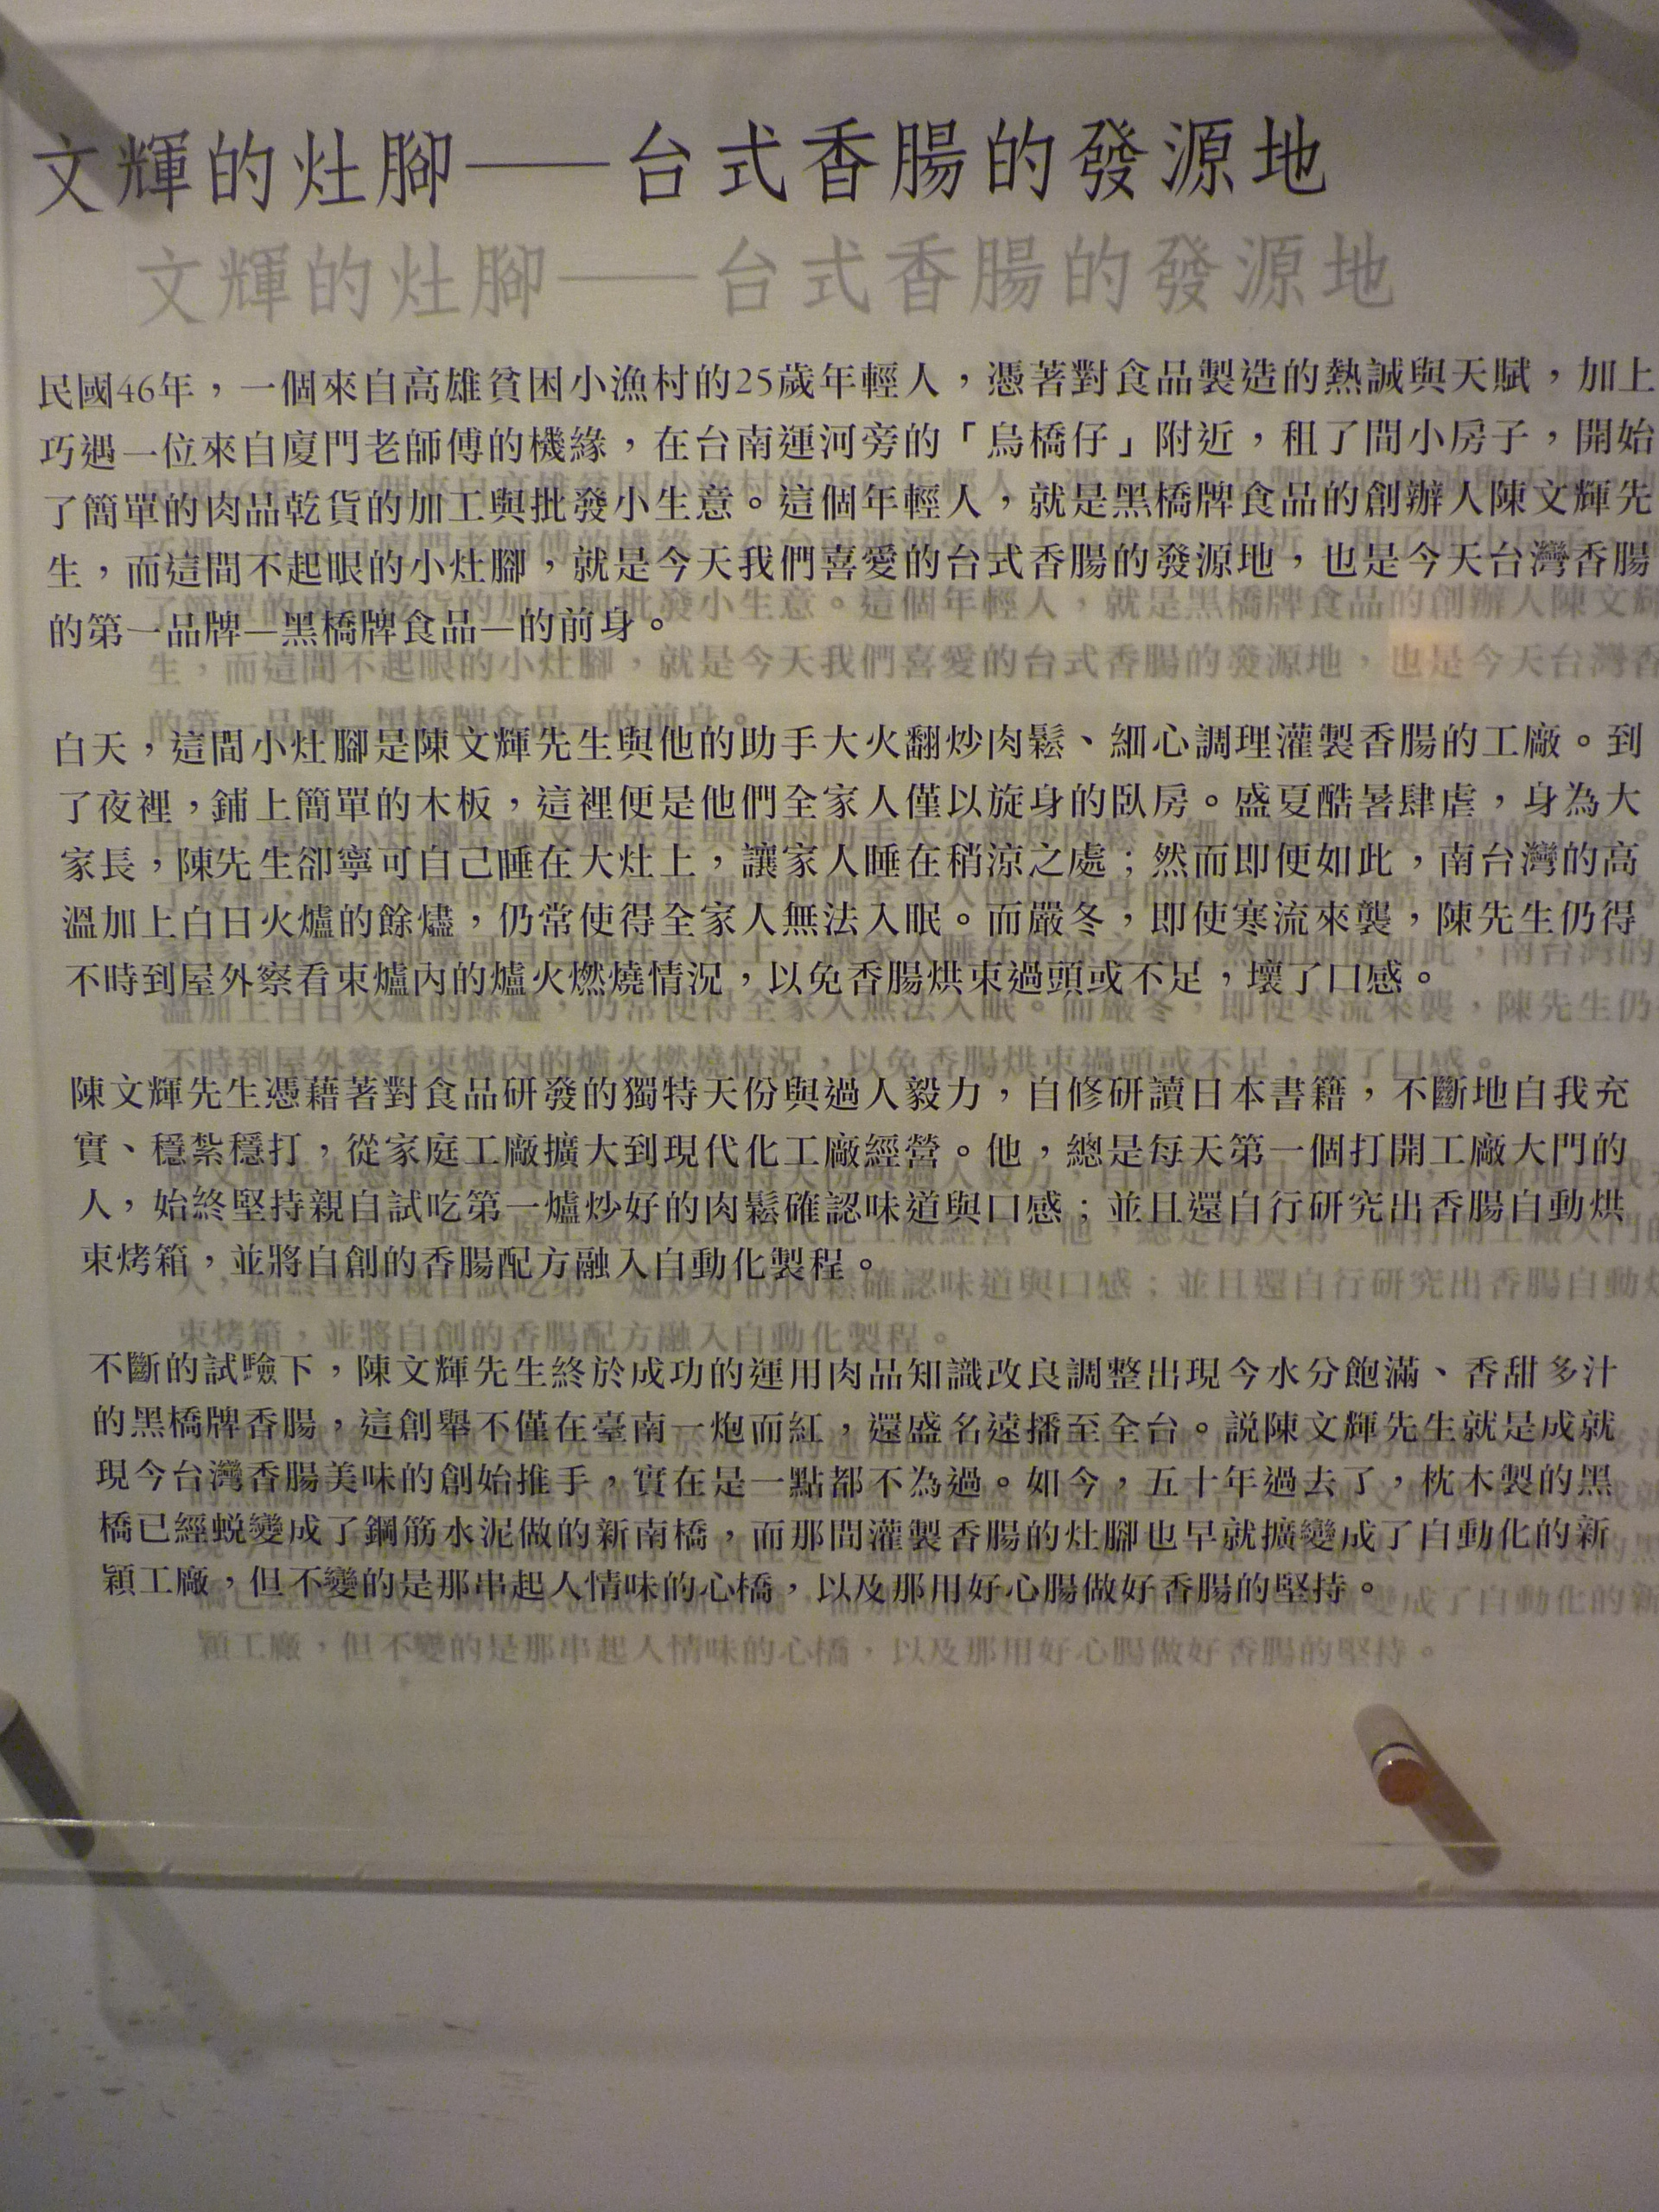 文輝的灶腳——台式香腸的發源地
民國46年，一個來自高雄貧困小漁村的25歲年輕人，憑著對食品製造的熱誠與天賦，加上
巧遇一位來自廈門老師傅的機緣，在台南運河旁的「烏橋仔」附近，租了間小房子，開始
了簡單的肉品乾貨的加工與批發小生意。這個年輕人，就是黑橋牌食品的創辦人陳文輝先
生，而這間不起眼的小灶腳，就是今天我們喜愛的台式香腸的發源地，也是今天台灣香腸
的第一品牌—黑橋牌食品—的前身。
白天，這間小灶腳是陳文輝先生與他的助手大火翻炒肉鬆、細心調理灌製香腸的工廠。到
了夜裡，鋪上簡單的木板，這裡便是他們全家人僅以旋身的臥房。盛夏酷暑肆虐，身為大
家長，陳先生卻寧可自己睡在大灶上，讓家人睡在稍涼之處；然而即便如此，南台灣的高
溫加上白日火爐的餘燼，仍常使得全家人無法入眠。而嚴冬，即使寒流來襲，陳先生仍得
不時到屋外察看束爐內的爐火燃燒情況，以免香腸烘束過頭或不足，壞了口感。
陳文輝先生憑藉著對食品研發的獨特天份與過人毅力，自修研讀日本書籍，不斷地自我充
實、穩紮穩打，從家庭工廠擴大到現代化工廠經營。他，總是每天第一個打開工廠大門的
人，始終堅持親自試吃第一爐炒好的肉鬆確認味道與口感；並且還自行研究出香腸自動烘
束烤箱，並將自創的香腸配方融入自動化製程。
不斷的試驗下，陳文輝先生終於成功的運用肉品知識改良調整出現今水分飽滿、香甜多汁
的黑橋牌香腸，這創舉不僅在臺南一炮而紅，還盛名遠播至全台。說陳文輝先生就是成就
現今台灣香腸美味的創始推手，實在是一點都不為過。如今，五十年過去了，枕木製的黑
橋已經蛻變成了鋼筋水泥做的新南橋，而那間灌製香腸的灶腳也早就擴變成了自動化的新
穎工廠，但不變的是那串起人情味的心橋，以及那用好心腸做好香腸的堅持。